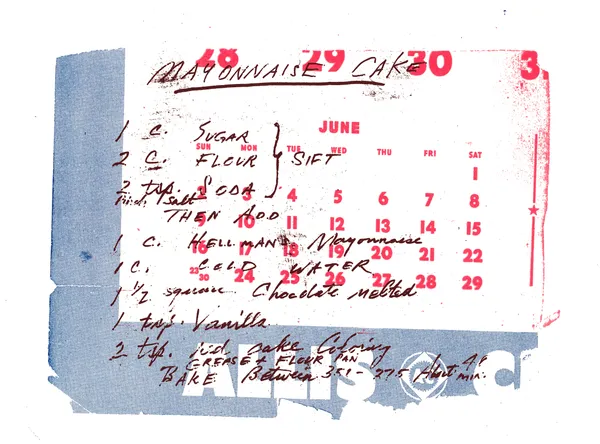 28 29 30 3
MAYONNAISE CAKE
JUNE
SUN MON TUE WED THU FRI SAT
1
2 3 4 5 6 7 8
9 10 11 12 13 14 15
16 17 18 19 20 21 22
23/30 24 25 26 27 28 29
1 C. SUGAR
2 C. FLOUR } SIFT
2 tsp. SODA
salt
THEN ADD
1 C. HELLMANS Mayonnaise
1 C. COLD WATER
1 1/2 square Chocolate melted
1 tsp. Vanilla
2 tsp. red cake Coloring
GREASE + FLOUR PAN
BAKE Between 350 - 375 Abut 45 min.
ALLIS C